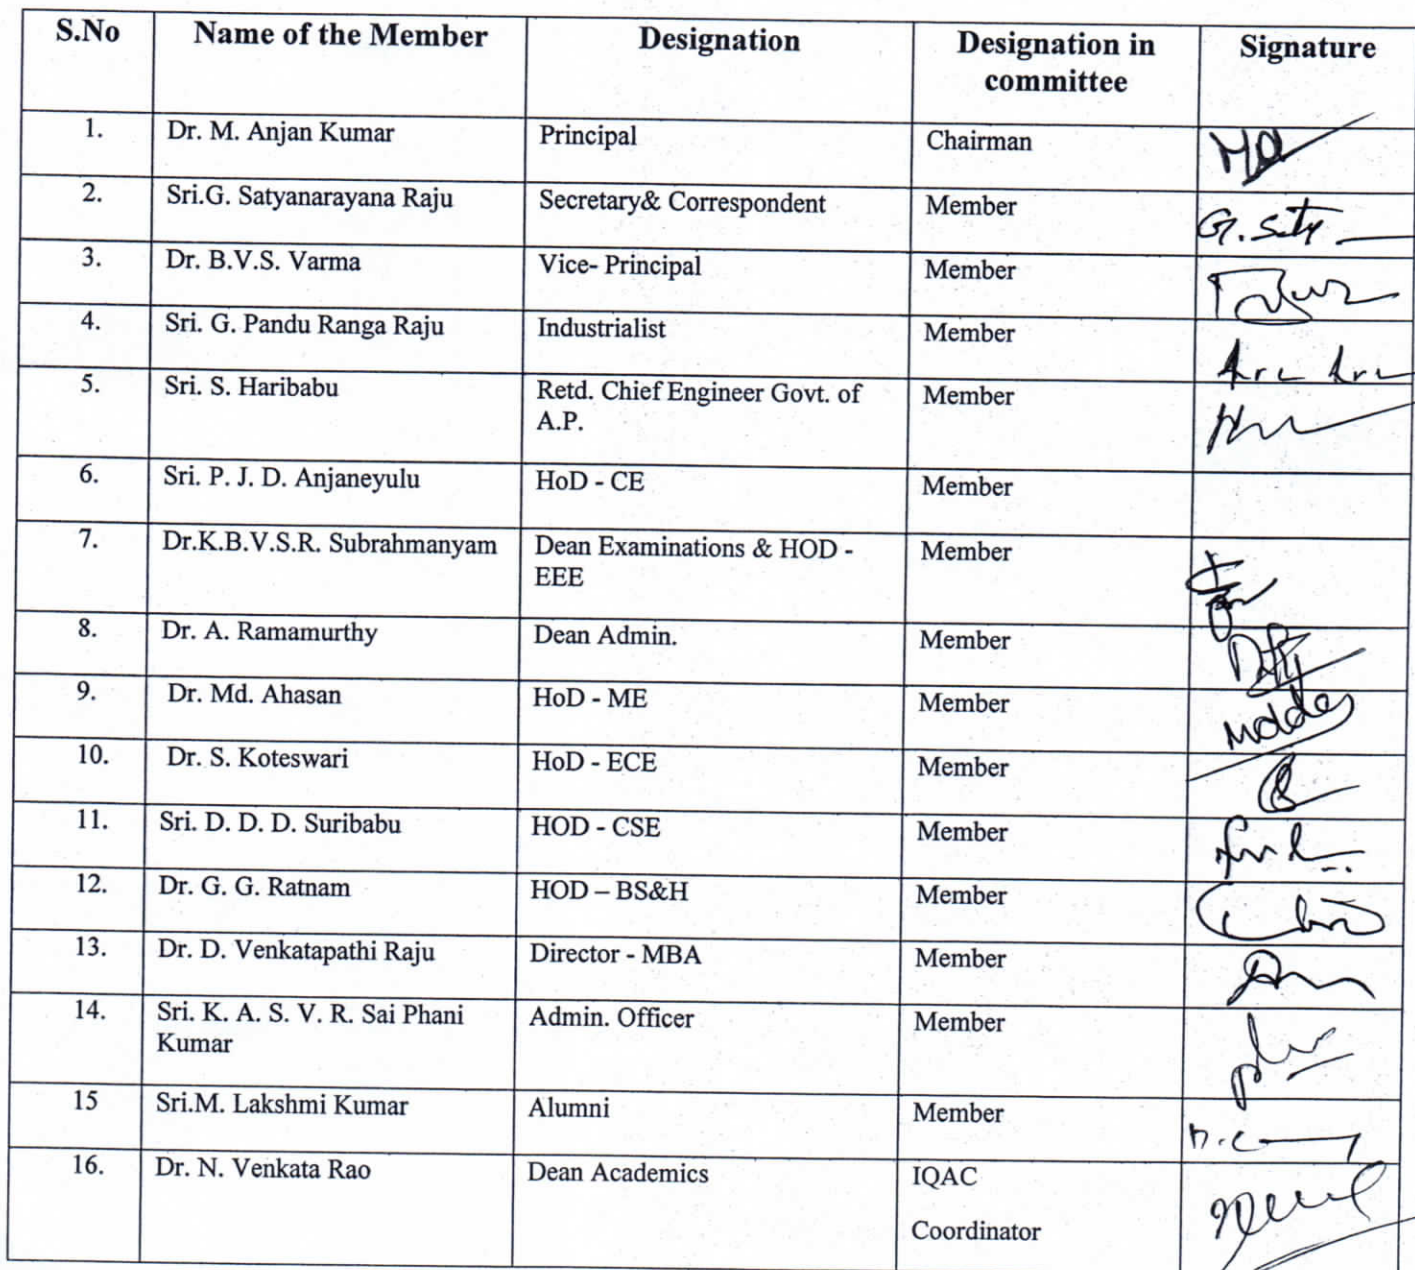 S.No Name of the Member Designation Designation in Signature
committee
1. Dr. M. Anjan Kumar Principal Chairman
2. Sri.G. Satyanarayana Raju Secretary& Correspondent Member G. Saty
3. Dr. B.V.S. Varma Vice- Principal Member
4. Sri. G. Pandu Ranga Raju Industrialist Member
5. Sri. S. Haribabu Retd. Chief Engineer Govt. of Member
A.P.
6. Sri. P. J. D. Anjaneyulu HoD - CE Member
7. Dr.K.B.V.S.R. Subrahmanyam Dean Examinations & HOD - Member
EEE
8. Dr. A. Ramamurthy Dean Admin. Member
9. Dr. Md. Ahasan HoD - ME Member
10. Dr. S. Koteswari HoD - ECE Member
11. Sri. D. D. D. Suribabu HOD - CSE Member
12. Dr. G. G. Ratnam HOD – BS&H Member
13. Dr. D. Venkatapathi Raju Director - MBA Member
14. Sri. K. A. S. V. R. Sai Phani Admin. Officer Member
Kumar
15 Sri.M. Lakshmi Kumar Alumni Member
16. Dr. N. Venkata Rao Dean Academics IQAC
Coordinator